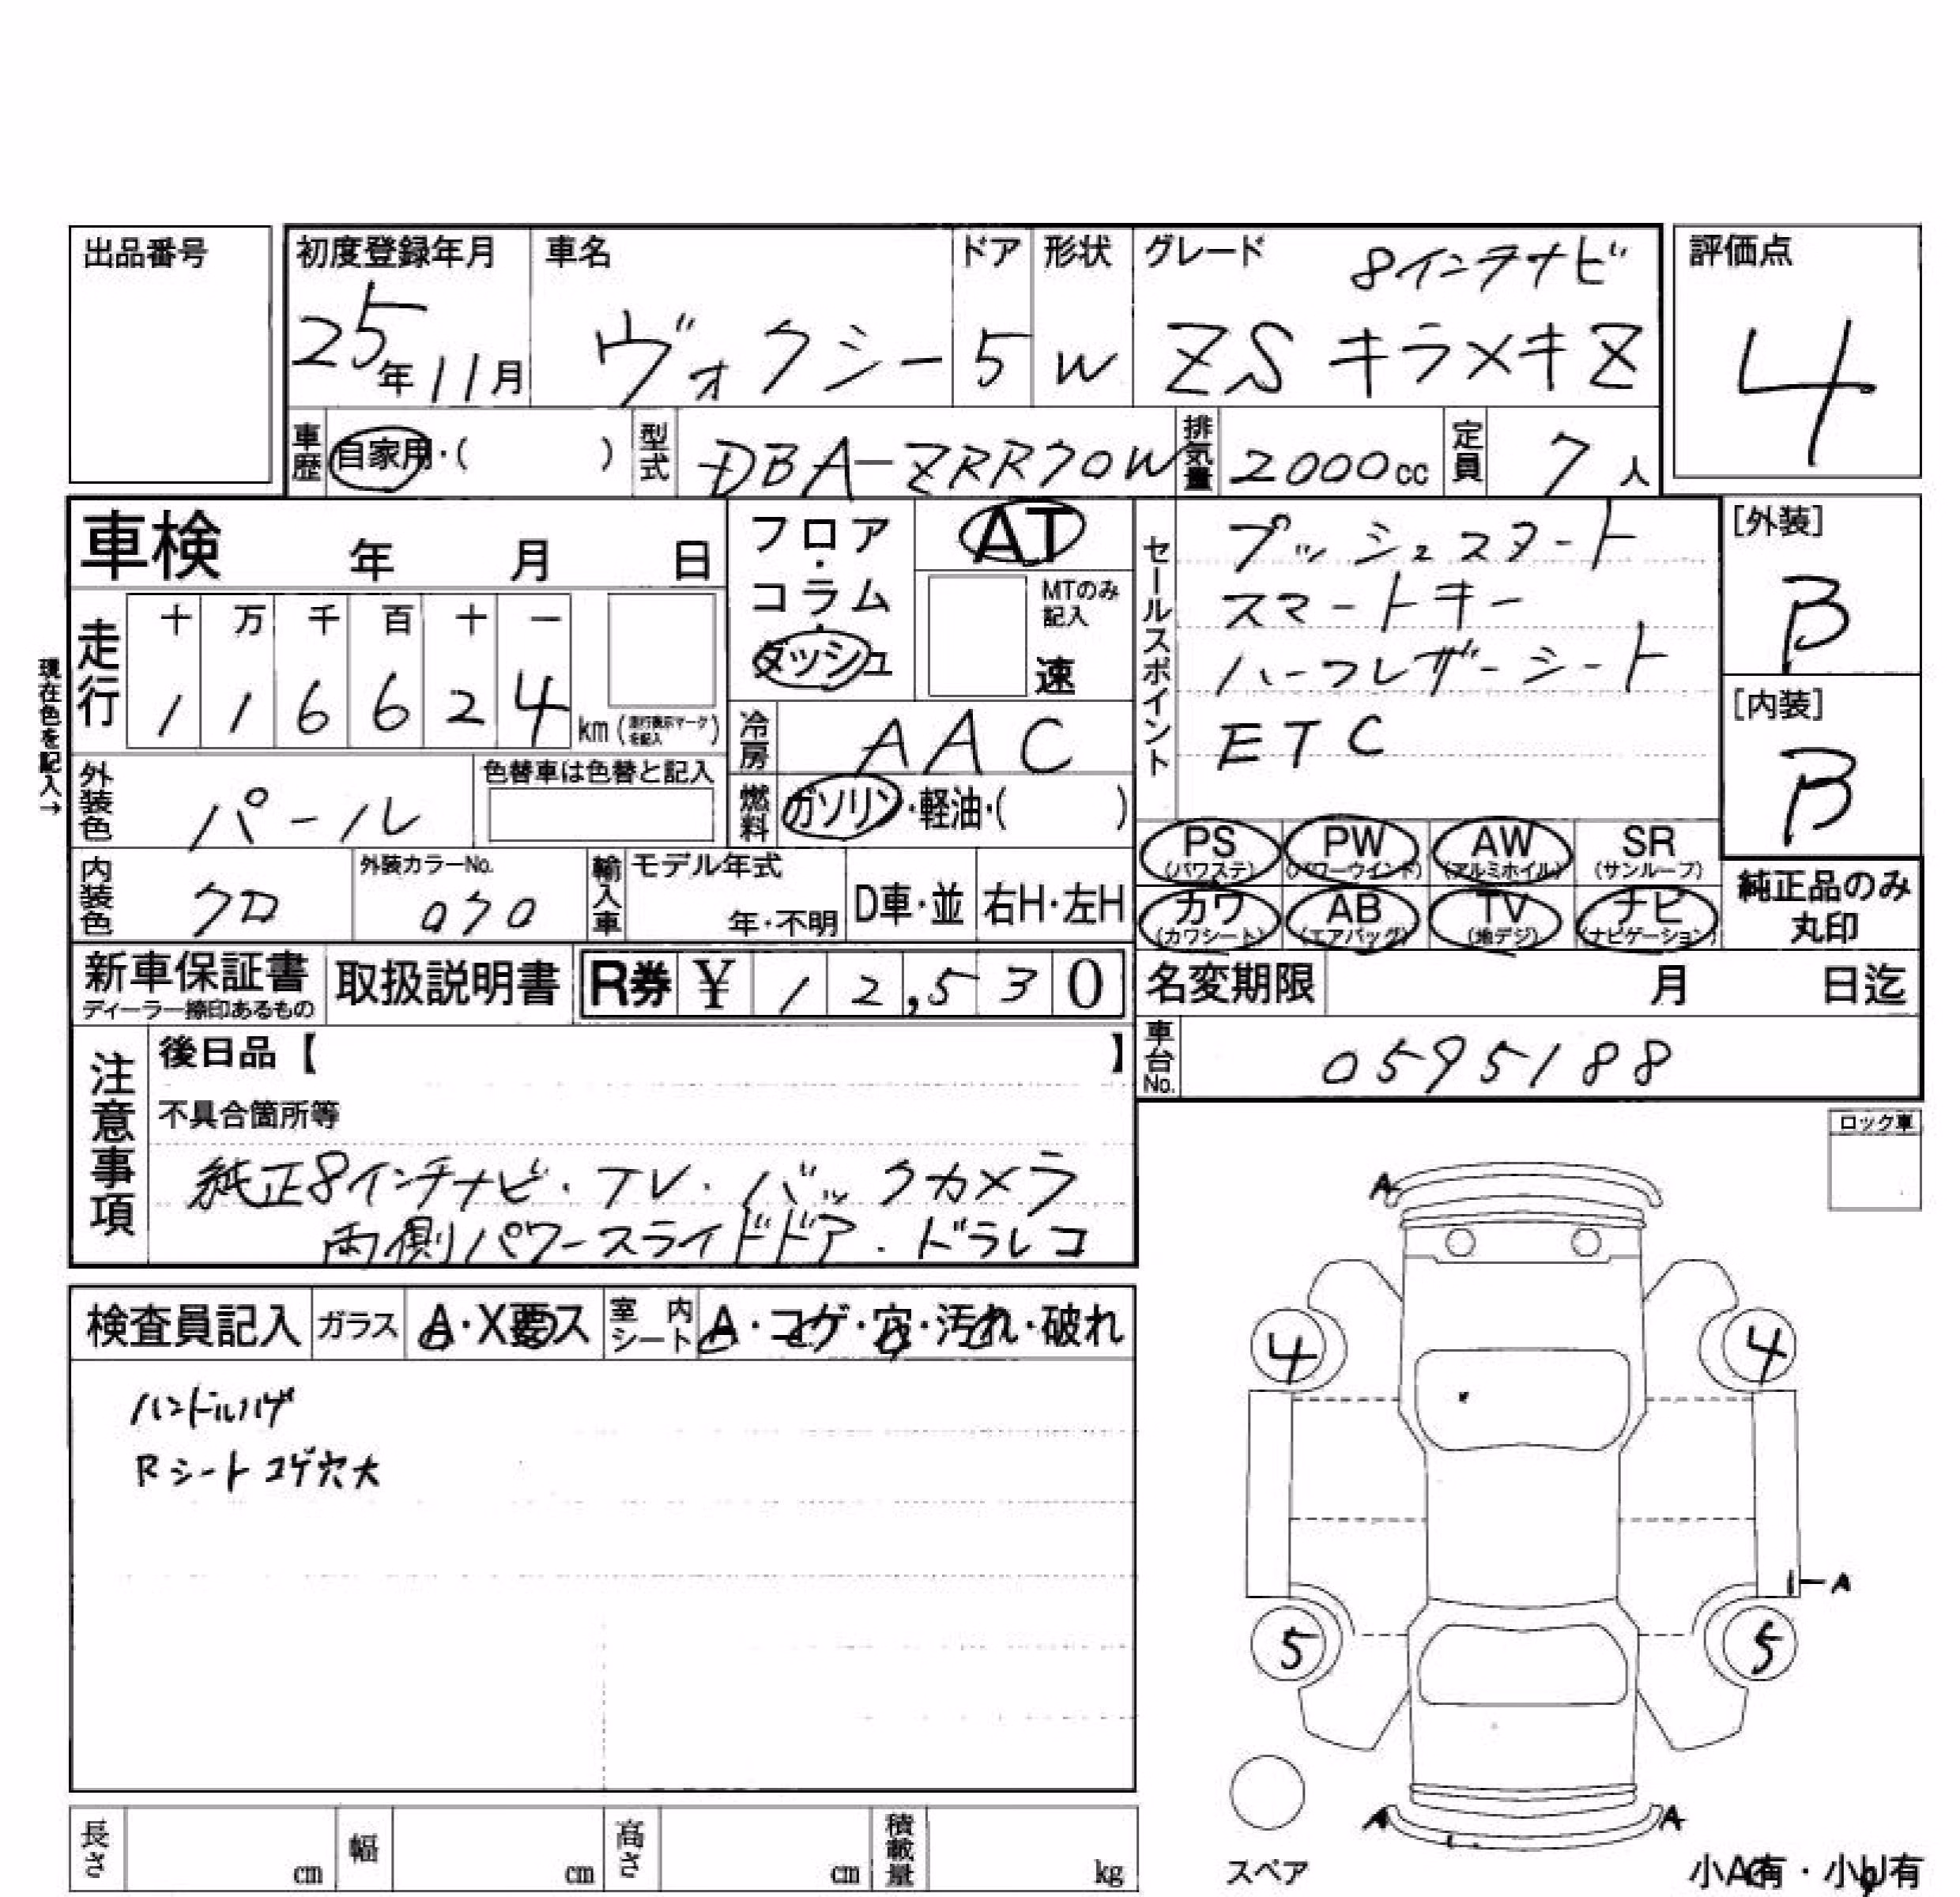 出品番号
初度登録年月
25年11月
車名
ヴォクシー
ドア
5
形状
W
グレード
8インチナビ
ZS キラメキZ
評価点
4
車歴
自家用・( )
型式
DBA-ZRR70W
排気量
2000cc
定員
7人
車検 年 月 日
走行
十 万 千 百 十 一
1 1 6 6 2 4
km(走行表示マークを記入)
現在色を記入→
フロア・
コラム・
ダッシュ
AT
MTのみ
記入
速
冷房
AAC
燃料
ガソリン・軽油・( )
外装色
パール
色替車は色替と記入
内装色
クロ
外装カラーNo.
070
輸入車
モデル年式
年・不明
D車・並
右H・左H
セールスポイント
プッシュスタート
スマートキー
ハーフレザーシート
ETC
[外装]
B
[内装]
B
PS PW AW SR
(パワステ) (パワーウインド) (アルミホイル) (サンルーフ)
カワ AB TV ナビ
(カワシート) (エアバッグ) (地デジ) (ナビゲーション)
純正品のみ
丸印
新車保証書
ディーラー捺印あるもの
取扱説明書
R券 ¥ 12,530
名変期限 月 日迄
車台No.
0595188
注意事項
後日品【 】
不具合箇所等
純正8インチナビ・TV・バックカメラ
両側パワースライドドア・ドラレコ
ロック車
検査員記入
ガラス
A・X要ス
室内シート
A・コゲ・穴・汚れ・破れ
ハンドルハゲ
Rシートコゲ穴大
A
4 4
A
5 5
A A
スペア
小A有・小U有
長さ cm
幅 cm
高さ cm
積載量 kg